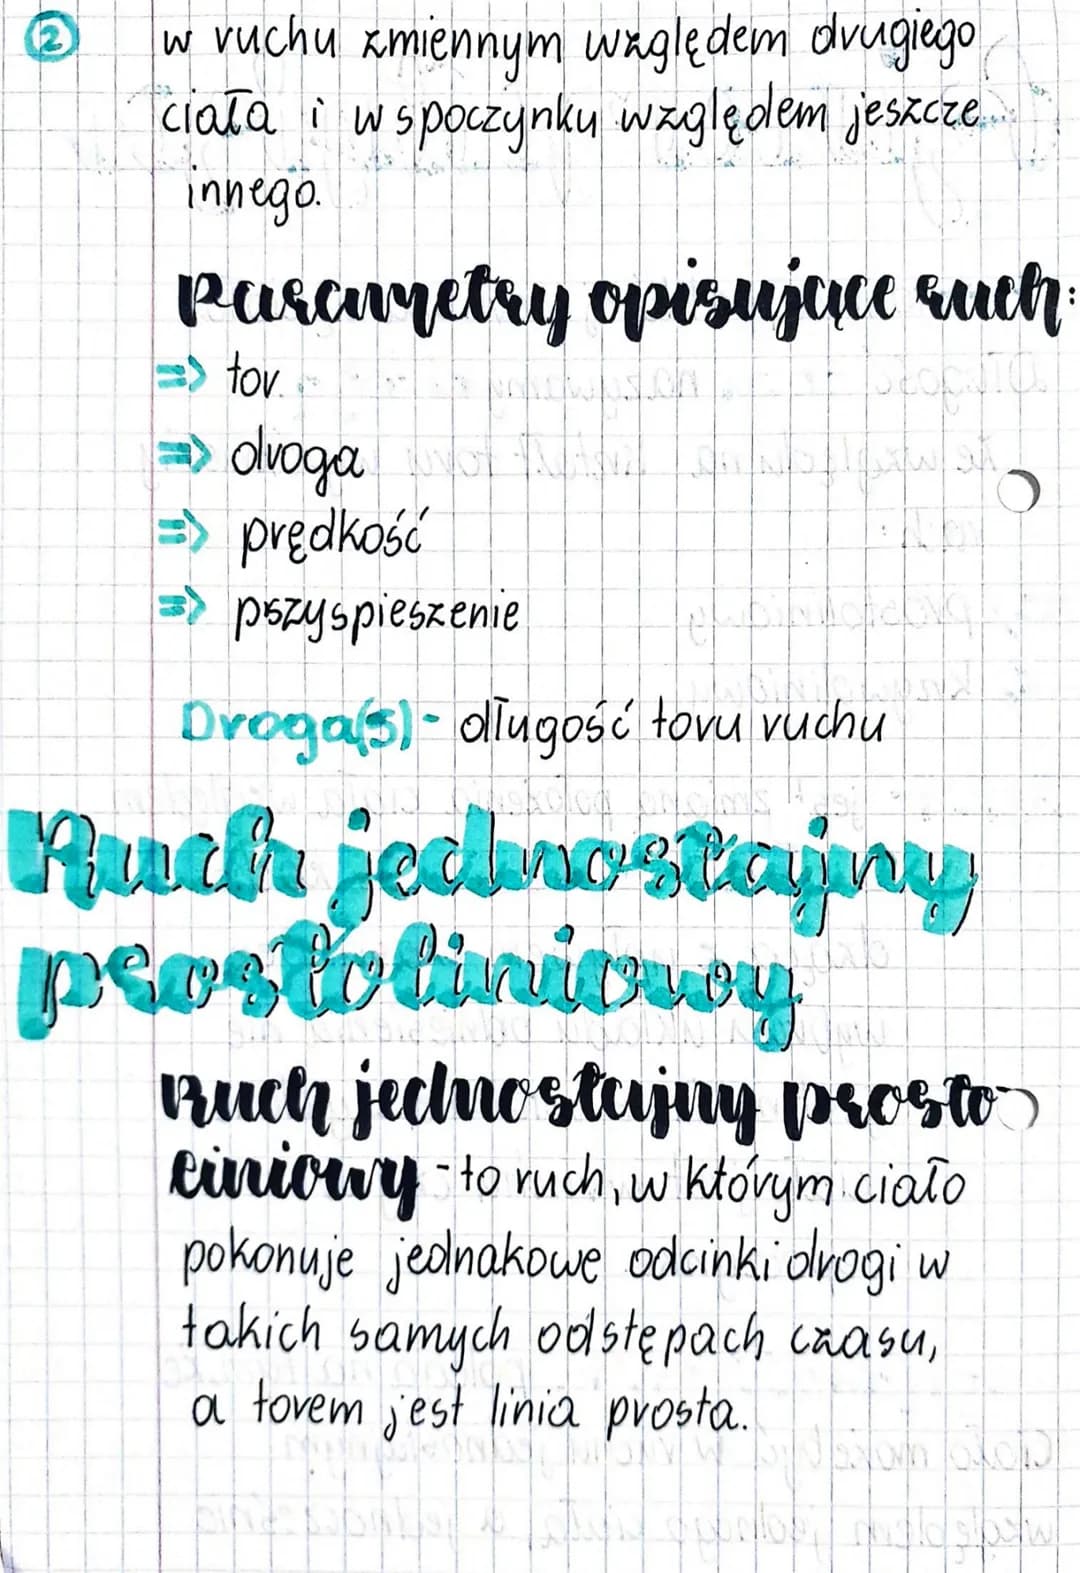 2
w ruchu zmiennym względem drugiego
ciała i w spoczynku względem jeszcze
innego.
Parametry opisujące ruch:
=> tor
=> droga
=> prędkość
=> pszyspieszenie
Droga(s) - długość toru ruchu
Ruch jednostajny
prostoliniowy
Ruch jednostajny prosto-
liniowy - to ruch, w którym ciało
pokonuje jednakowe odcinki drogi w
takich samych odstępach czasu,
a torem jest linia prosta.